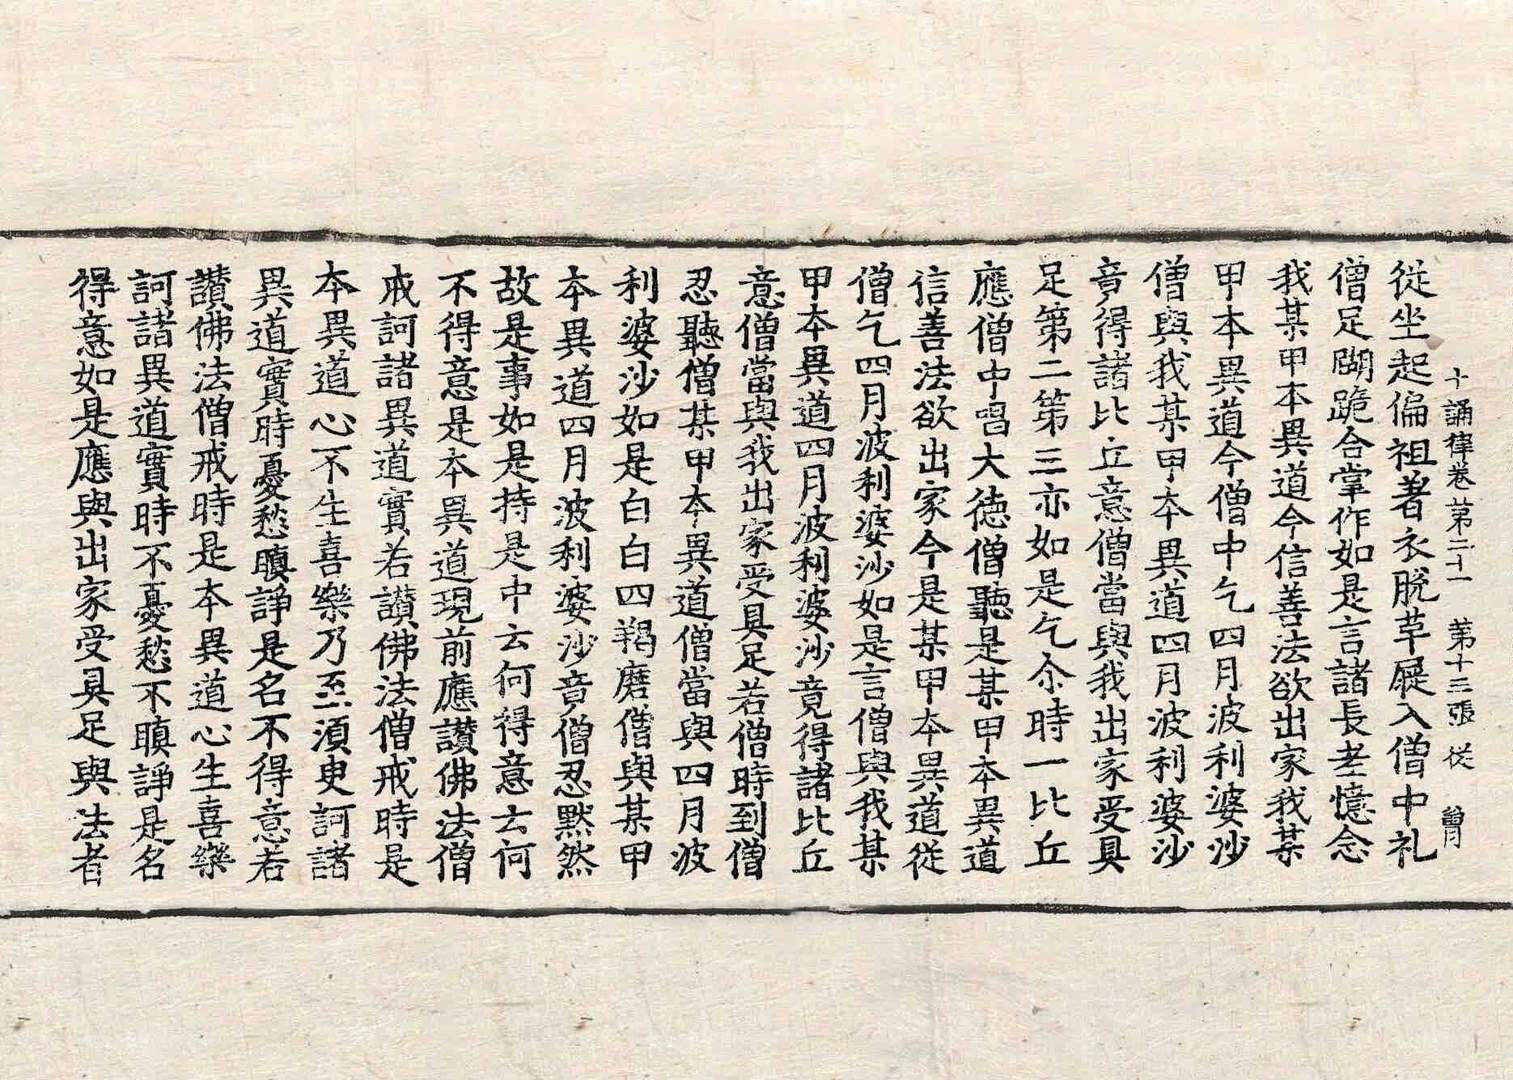 十誦律卷第二十一 第十三張 從 曾
從坐起偏袒著衣脫草屣入僧中礼
僧足䠒跪合掌作如是言諸長老憶念
我某甲本異道今信善法欲出家我某
甲本異道今僧中乞四月波利婆沙
僧與我某甲本異道四月波利婆沙
竟得諸比丘意僧當與我出家受具
足第二第三亦如是乞尒時一比丘
應僧中唱大德僧聽是某甲本異道
信善法欲出家今是某甲本異道從
僧乞四月波利婆沙如是言僧與我某
甲本異道四月波利婆沙竟得諸比丘
意僧當與我出家受具足若僧時到僧
忍聽僧某甲本異道僧當與四月波
利婆沙如是白白四羯磨僧與某甲
本異道四月波利婆沙竟僧忍默然
故是事如是持是中云何得意云何
不得意是本異道現前應讚佛法僧
戒訶諸異道實若讚佛法僧戒時是
本異道心不生喜樂乃至須臾訶諸
異道實時憂愁瞋諍是名不得意若
讚佛法僧戒時是本異道心生喜樂
訶諸異道實時不憂愁不瞋諍是名
得意如是應與出家受具足與法者